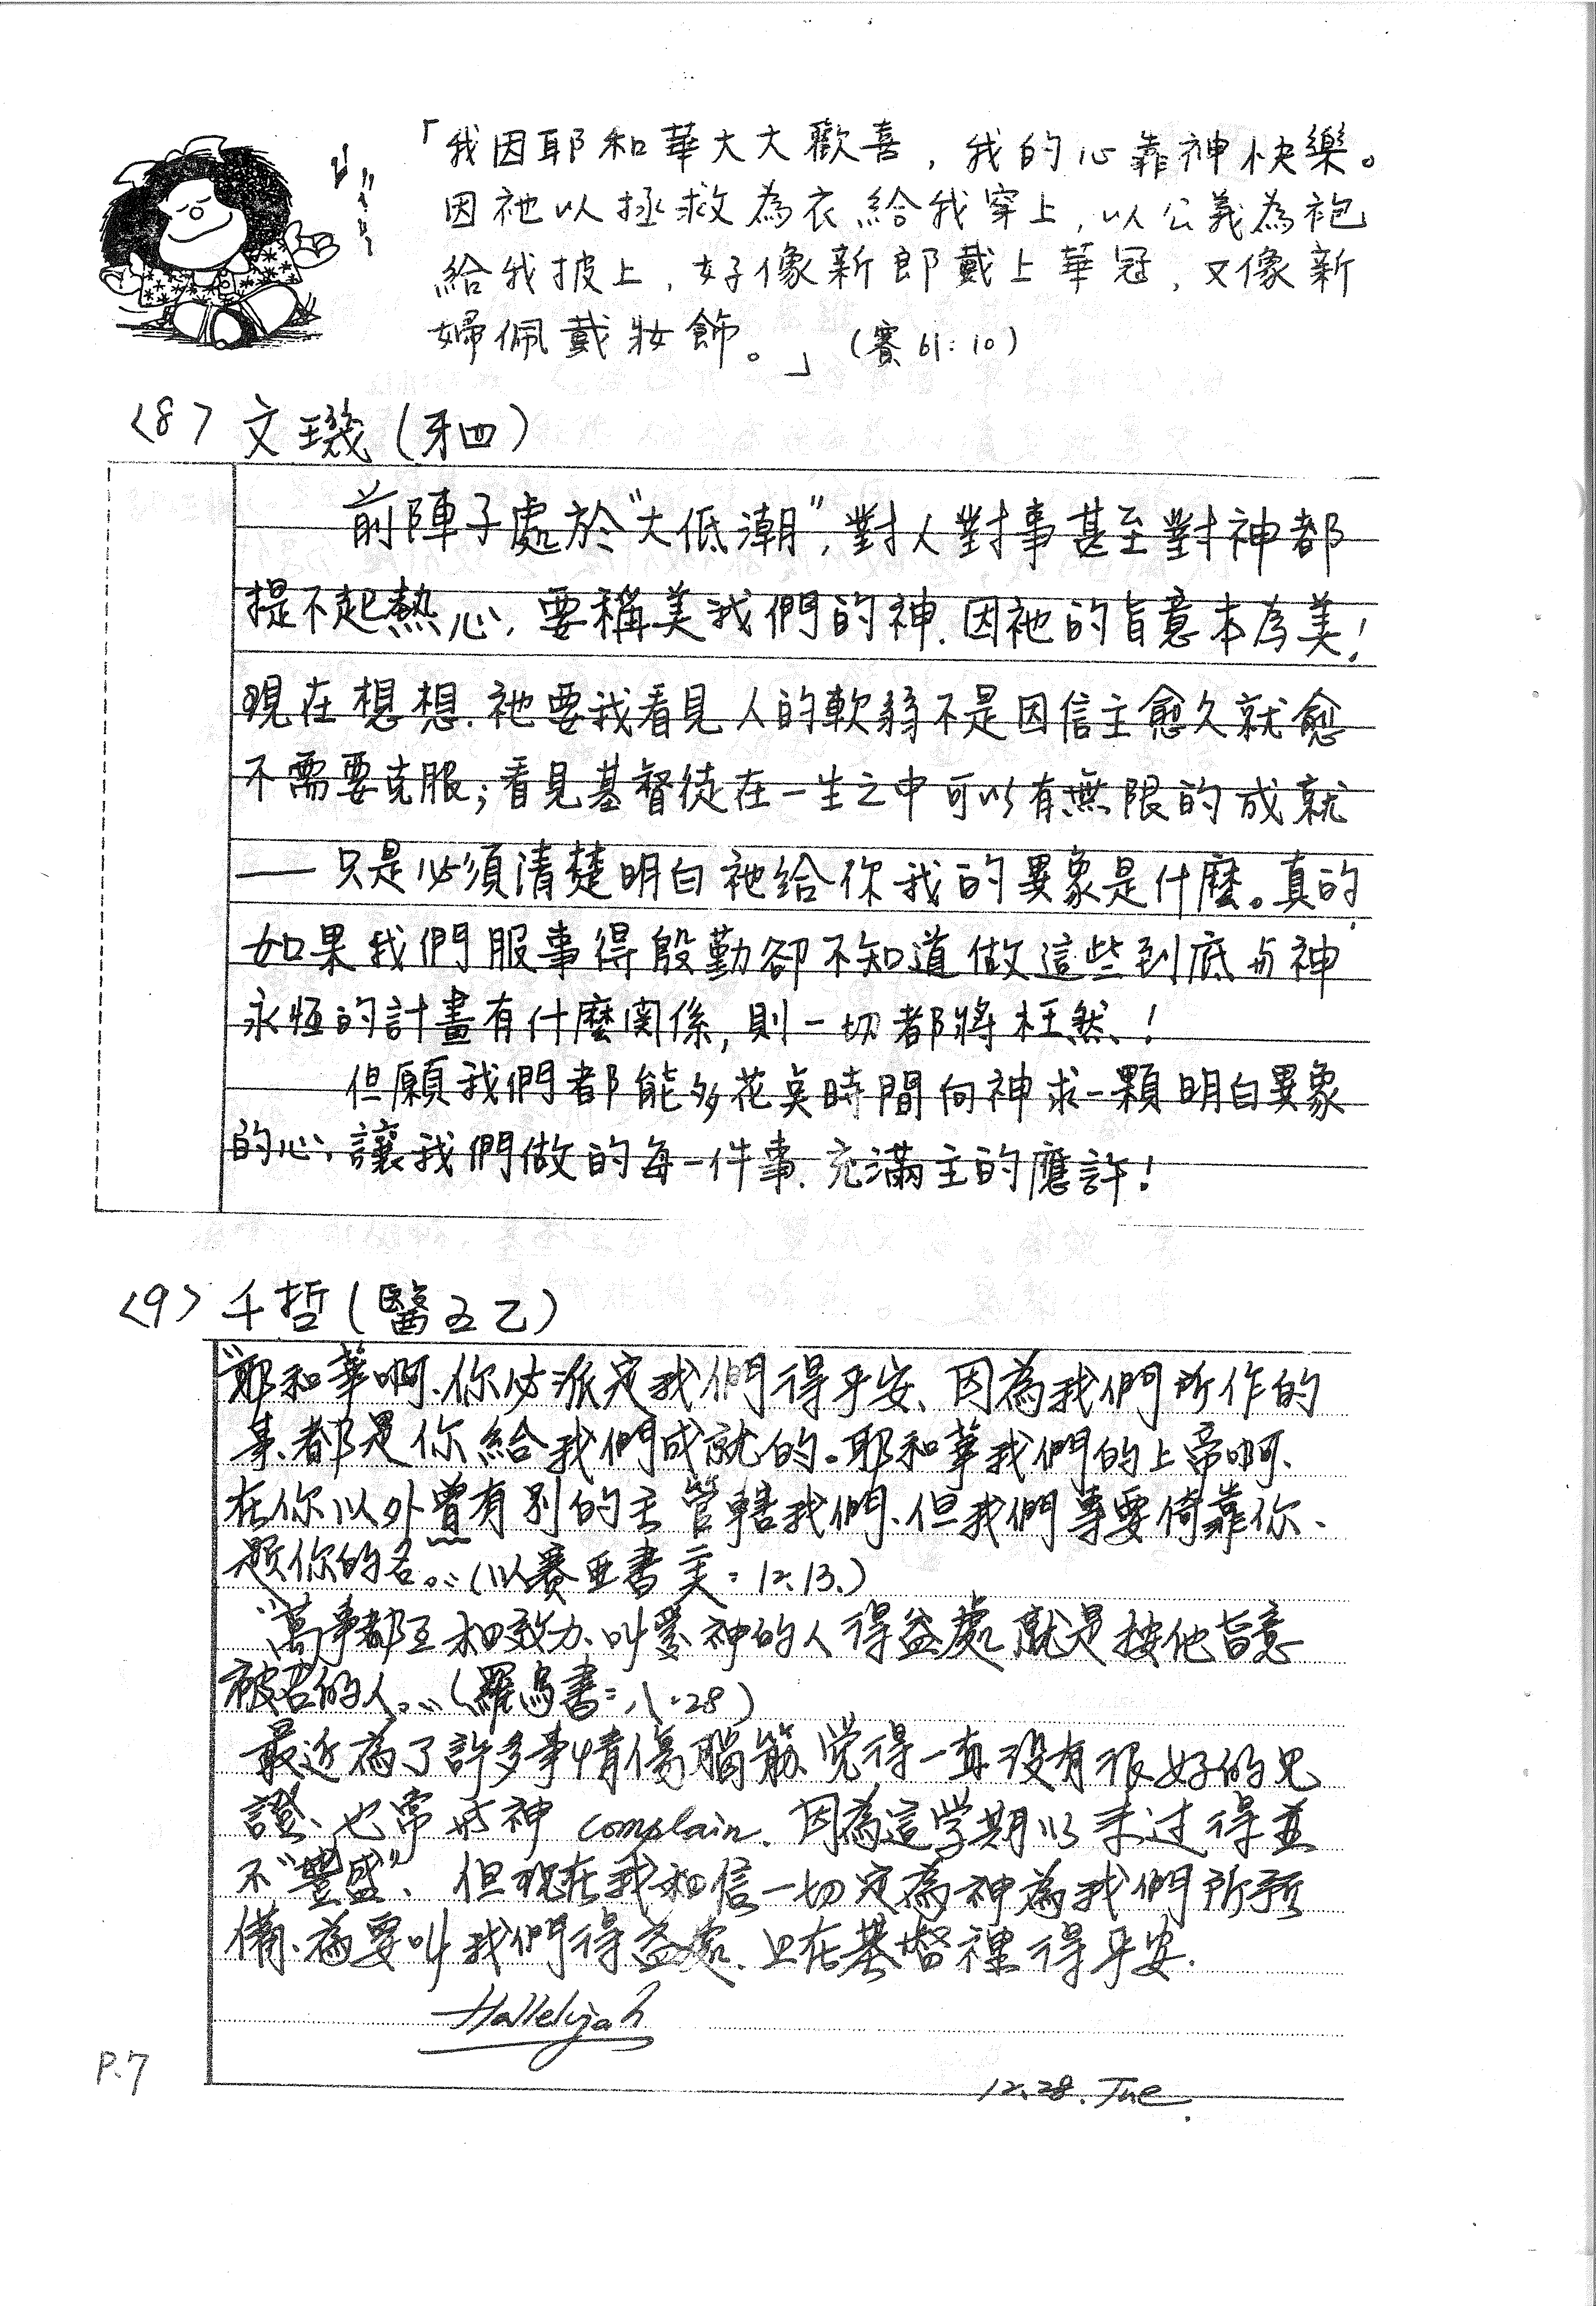 「我因耶和華大大歡喜，我的心靠神快樂。
因祂以拯救為衣給我穿上，以公義為袍
給我披上，好像新郎戴上華冠，又像新
婦佩戴妝飾。」（賽61：10）
〈8〉文璣（牙四）
前陣子處於“大低潮”，對人對事甚至對神都
提不起熱心，要稱美我們的神，因祂的旨意本為美！
現在想想，祂要我看見人的軟弱不是因信主愈久就愈
不需要克服；看見基督徒在一生之中可以有無限的成就
——只是必須清楚明白祂給你我的異象是什麼。真的，
如果我們服事得殷勤卻不知道做這些到底与神
永恒的計畫有什麼関係，則一切都將枉然！
但願我們都能多花点時間向神求一顆明白異象
的心，讓我們做的每一件事，充滿主的應許！
〈9〉千哲（醫五乙）
“耶和華啊、你必派定我們得平安、因為我們所作的
事、都是你給我們成就的。耶和華我們的上帝啊、
在你以外曾有別的主管轄我們、但我們專要倚靠你、
題你的名。”（以賽亞書 : 12.13.）
“萬事都互相效力、叫愛神的人得益處、就是按他旨意
被召的人。”（羅馬書：八：28）
最近為了許多事情傷腦筋、覚得一直没有很好的見
證、也常对神 complain. 因為這学期以来过得並
不“豐盛”、但現在我相信一切定為神為我們所預
備、為要叫我們得益處、且在基督裡得平安.
Hallelujah
P.7
12.28. Tue.